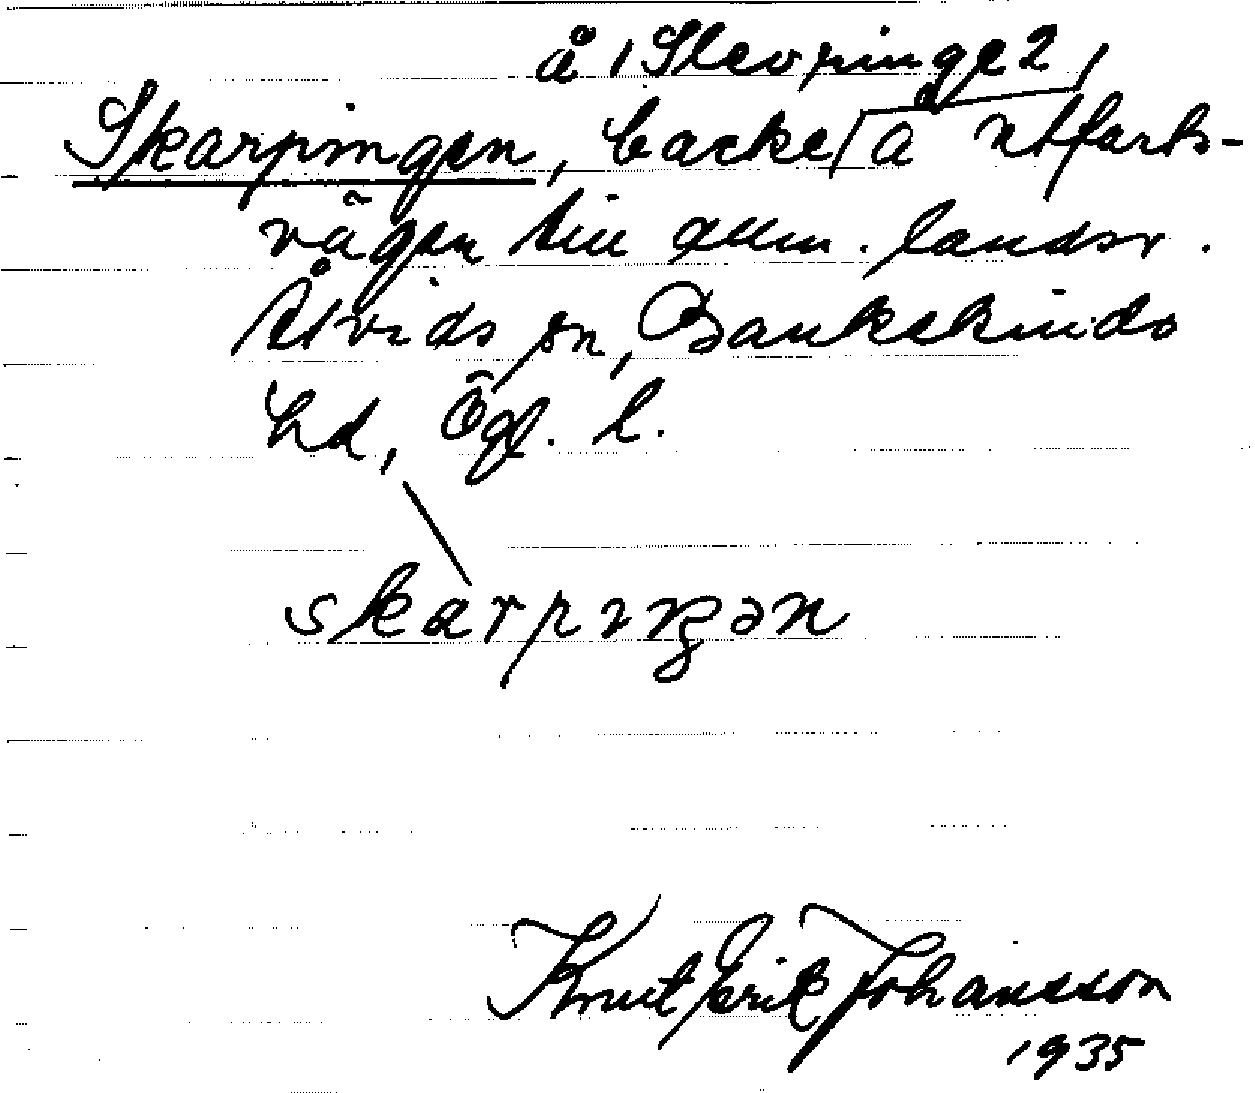 å /Slevringe 2/
Skarpingen, backe å utfarts-
vägen till allm. landsv.
Åtvids sn, Bankekinds
hd, Ögl. l.
skarpıŋən
Knut Erik Johansson
1935